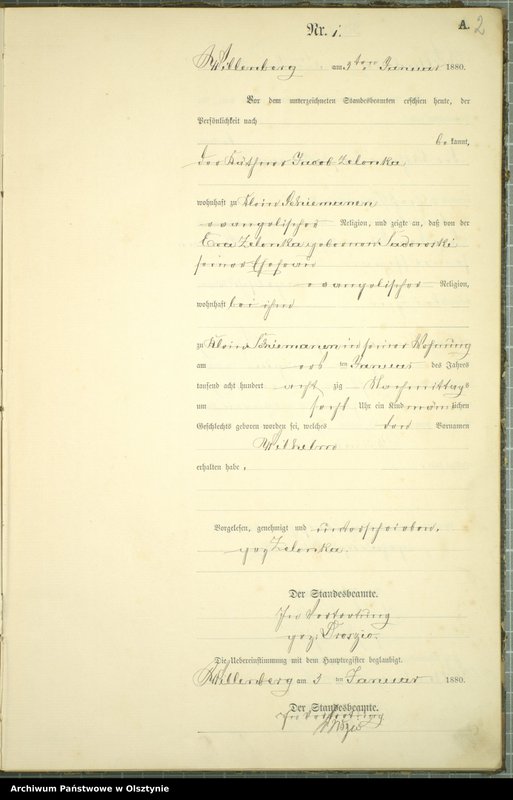 A. 2
Nr. 1.
Willenberg am 3ten Januar 1880.
Vor dem unterzeichneten Standesbeamten erschien heute, der
Persönlichkeit nach
bekannt,
der Käthner Jacob Zelonka
wohnhaft zu Klein Schiemanen
evangelischer Religion, und zeigte an, daß von der
Eva Zelonka geborenen Sadowski
seiner Ehefrau
evangelischer Religion,
wohnhaft bei ihm
zu Klein Schiemanen in seiner Wohnung
am ersten Januar des Jahres
tausend acht hundert acht zig Nachmittags
um sechs Uhr ein Kind männlichen
Geschlechts geboren worden sei, welches den Vornamen
Wilhelm
erhalten habe.
Vorgelesen, genehmigt und unterschrieben.
gez Zelonka.
Der Standesbeamte.
In Vertretung
gez:
Die Uebereinstimmung mit dem Hauptregister beglaubigt.
Willenberg am 3 ten Januar 1880.
Der Standesbeamte.
In Vertretung
Archiwum Państwowe w Olsztynie